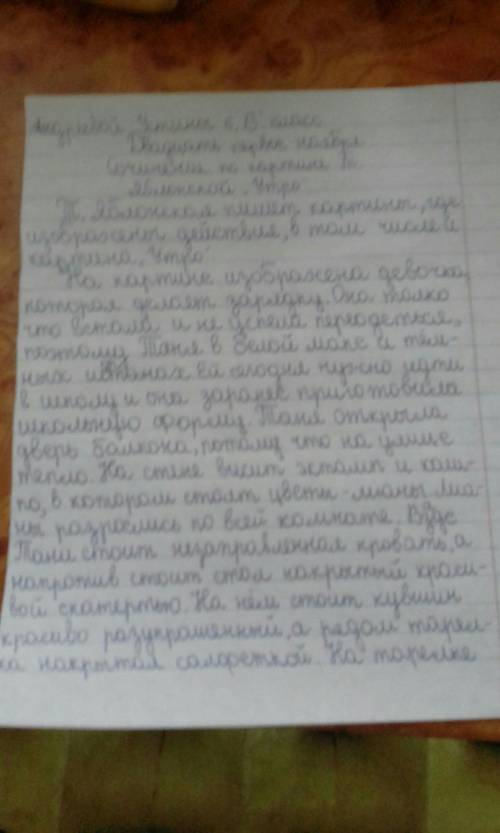 Андреевой Устины 6 "В" класс
Двадцать первое ноября
Сочинение по картине Т.
Яблонской "Утро"
Т. Яблонская пишет картины, где
изображены действия, в том числе и
картина "Утро".
На картине изображена девочка,
которая делает зарядку. Она толко
что встала и не успела переодеться,
поэтому Таня в белой маке и тём-
ных штанах. Ей сегодня нужно идти
в школу и она заранее приготовила
школьную форму. Таня открыла
дверь балкона, потому что на улице
тепло. На стене висит эстамп и каш-
по, в котором стоят цветы - лианы. Лиа-
ны разрослись по всей комнате.
Тани стоит незаправленная кровать, а
напротив стоит стол накрытый краси-
вой скатертью. На нём стоит кувшин
красиво разукрашенный, а рядом тарел-
ка накрытая салфеткой. На тарелке